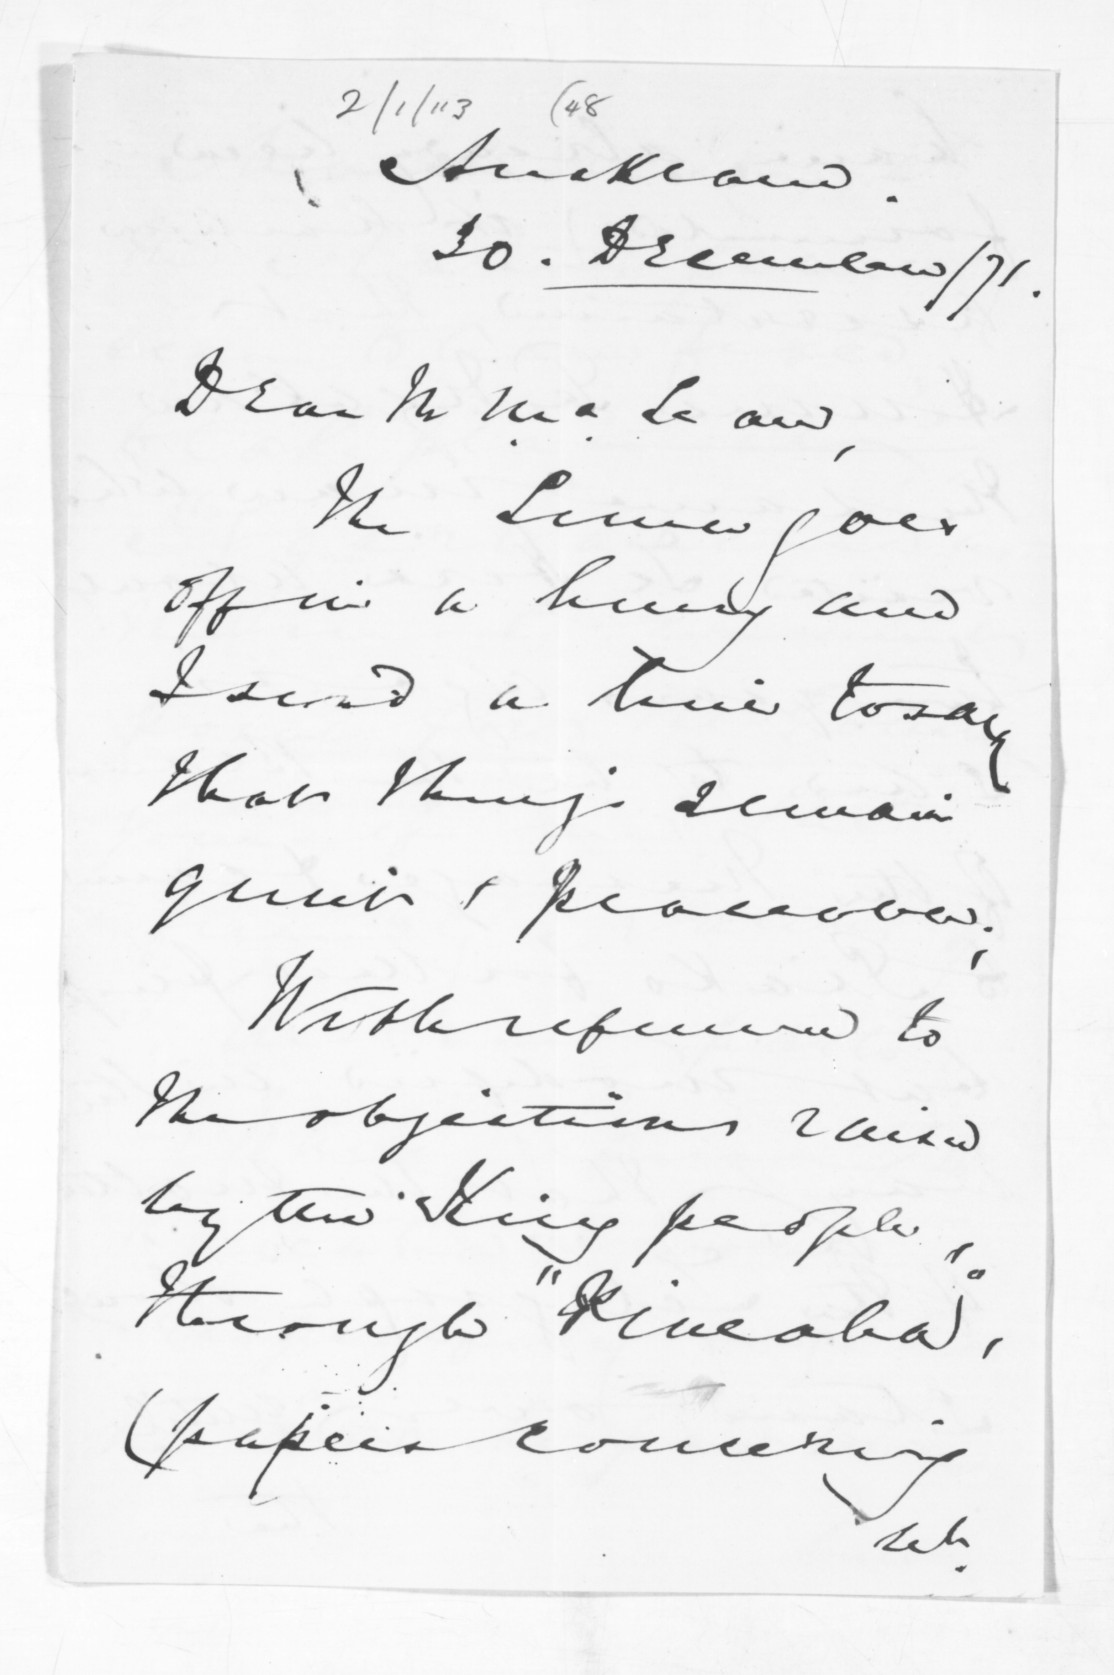 2/1/113 (48
Auckland.
30. December/71.
Dear Mr McLean,
The Luna goes
off in a hurry and
I send a line to say
that things remain
quiet & peaceable;
With reference to
the objections raised
by the "King people".
through "Pineaha",
(papers concerning
wh.